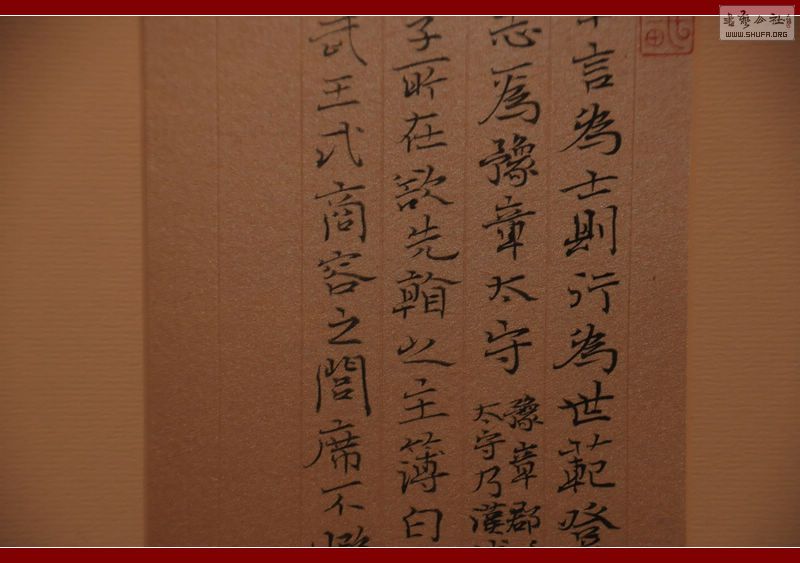 言為士則行為世範登
志為豫章太守
豫章郡
太守乃漢
子所在欲先之主簿白
武王式商容之閭席不
书艺公社
WWW.SHUFA.ORG